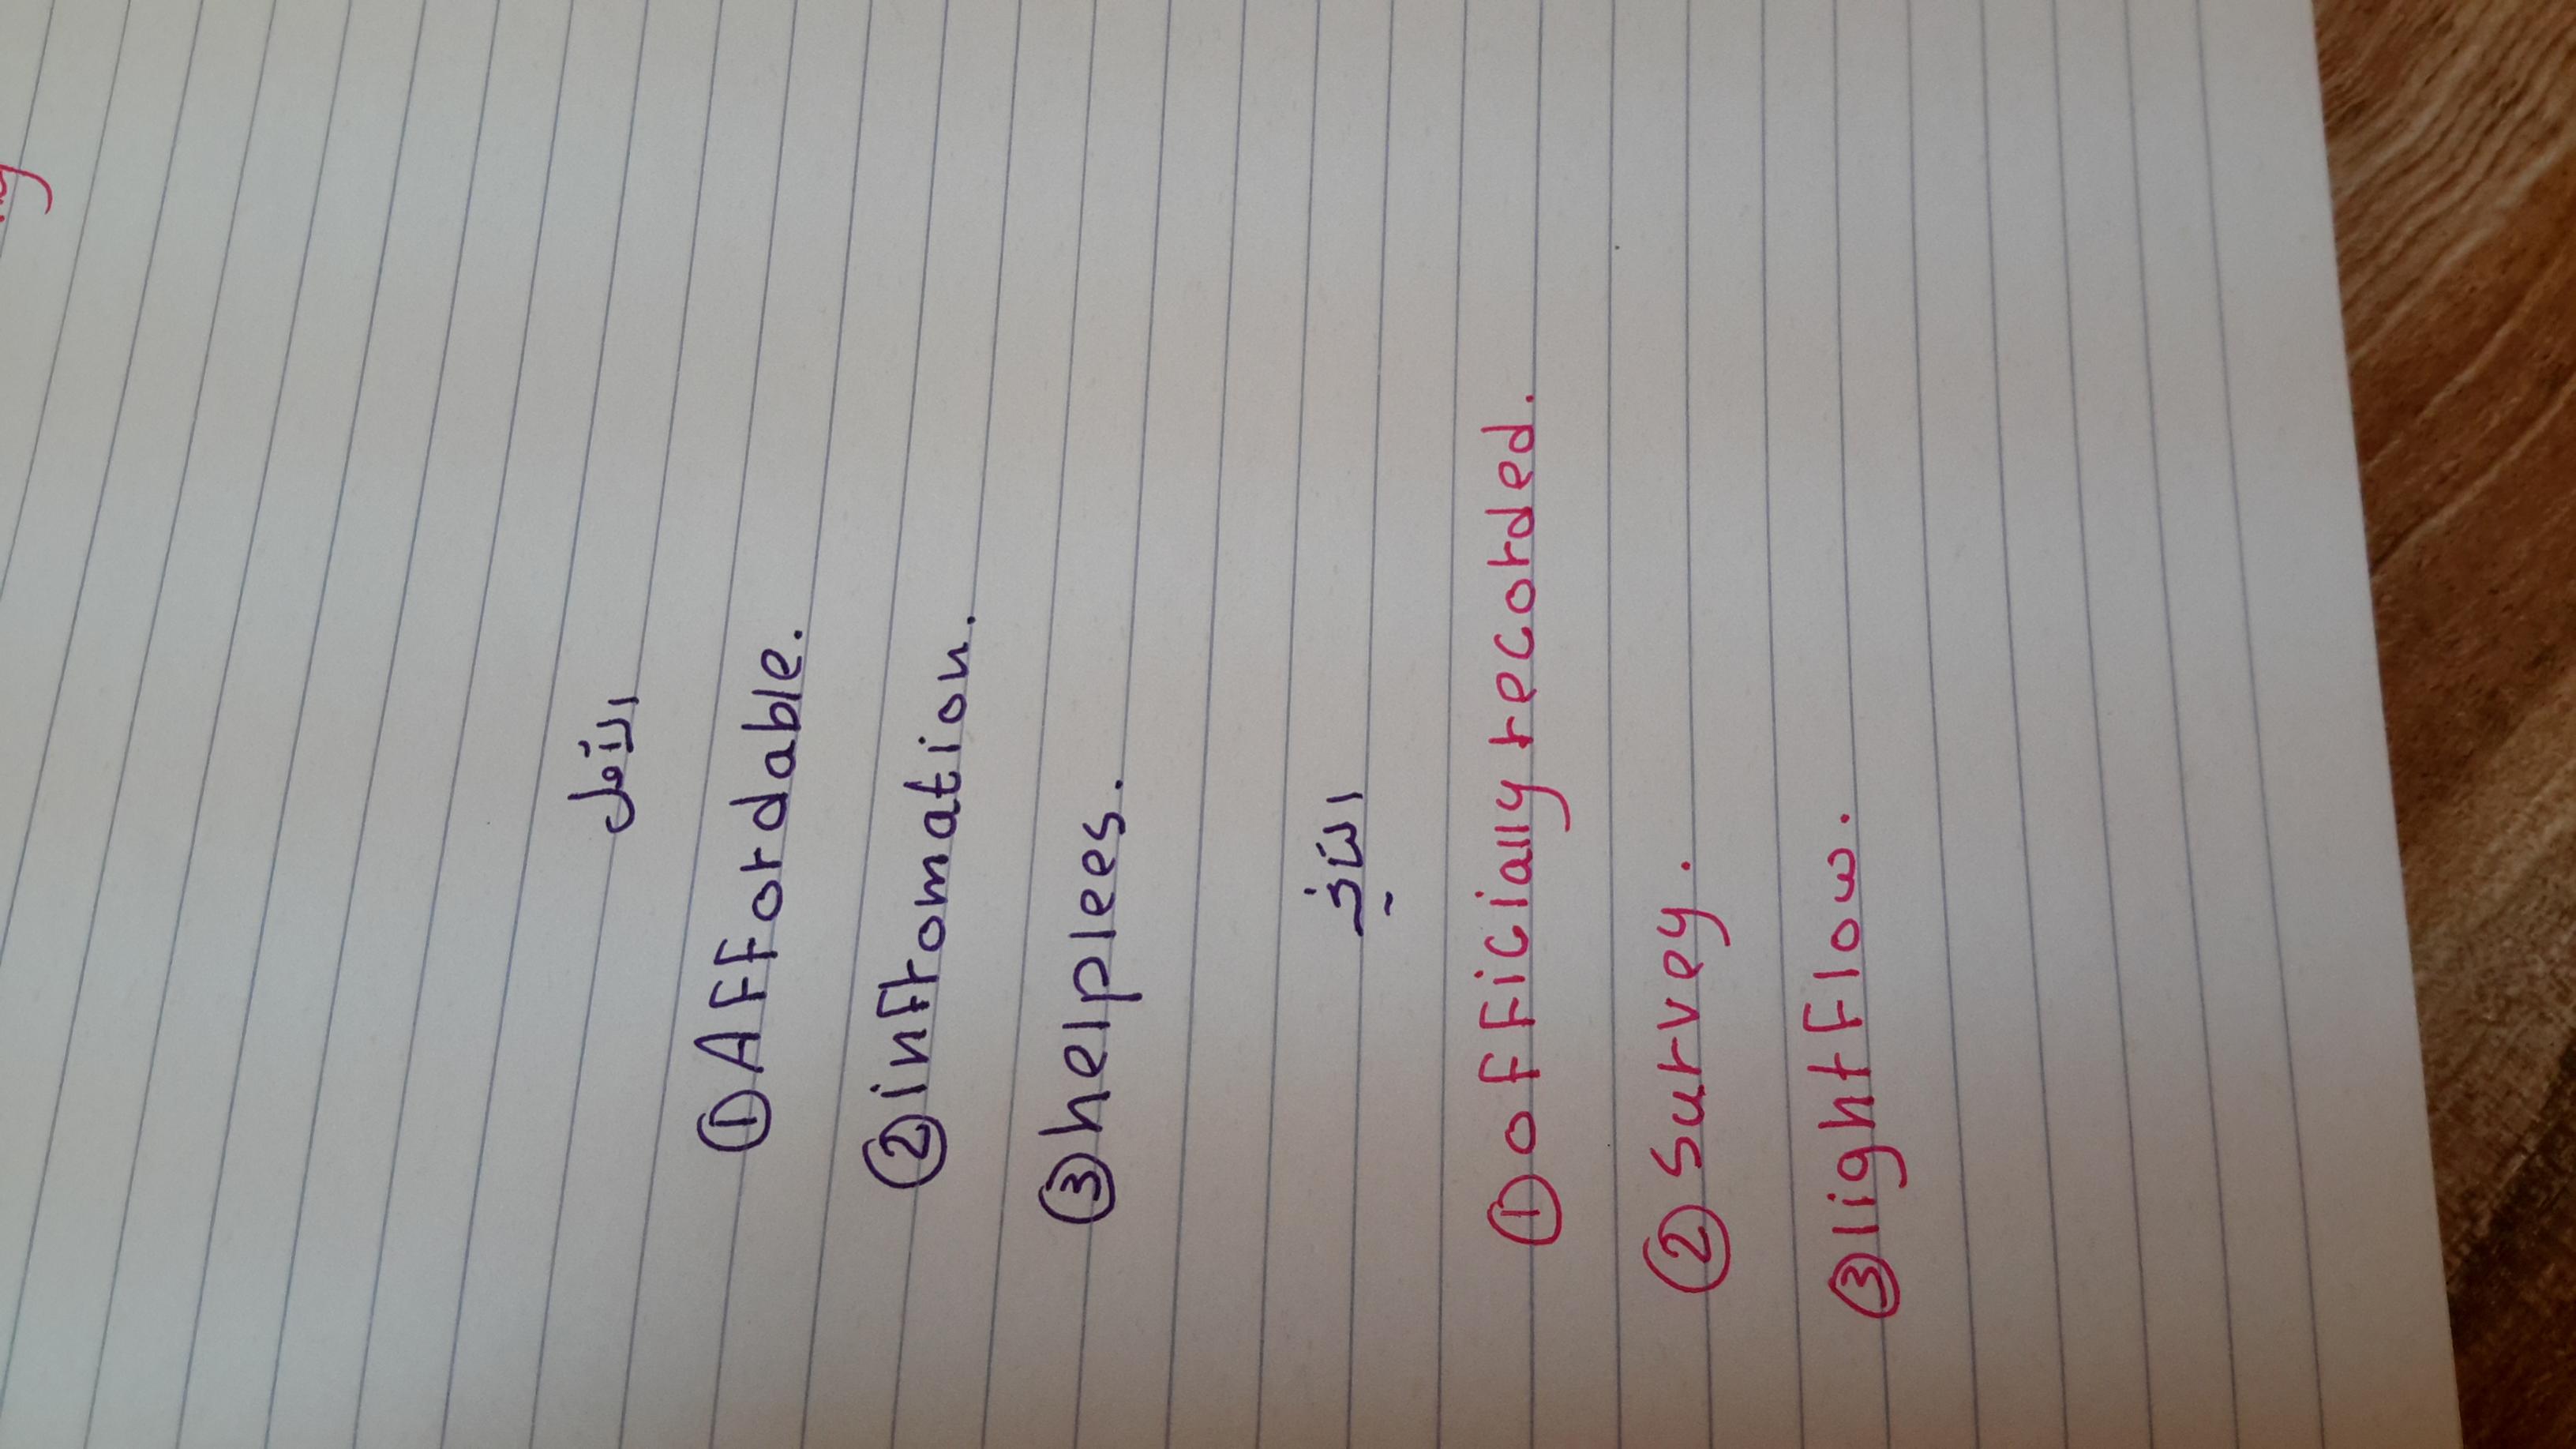 الأول
① Affordable.
② infromation.
③ helplees.
الثاني
① officially recorded.
② survey.
③ light flow.